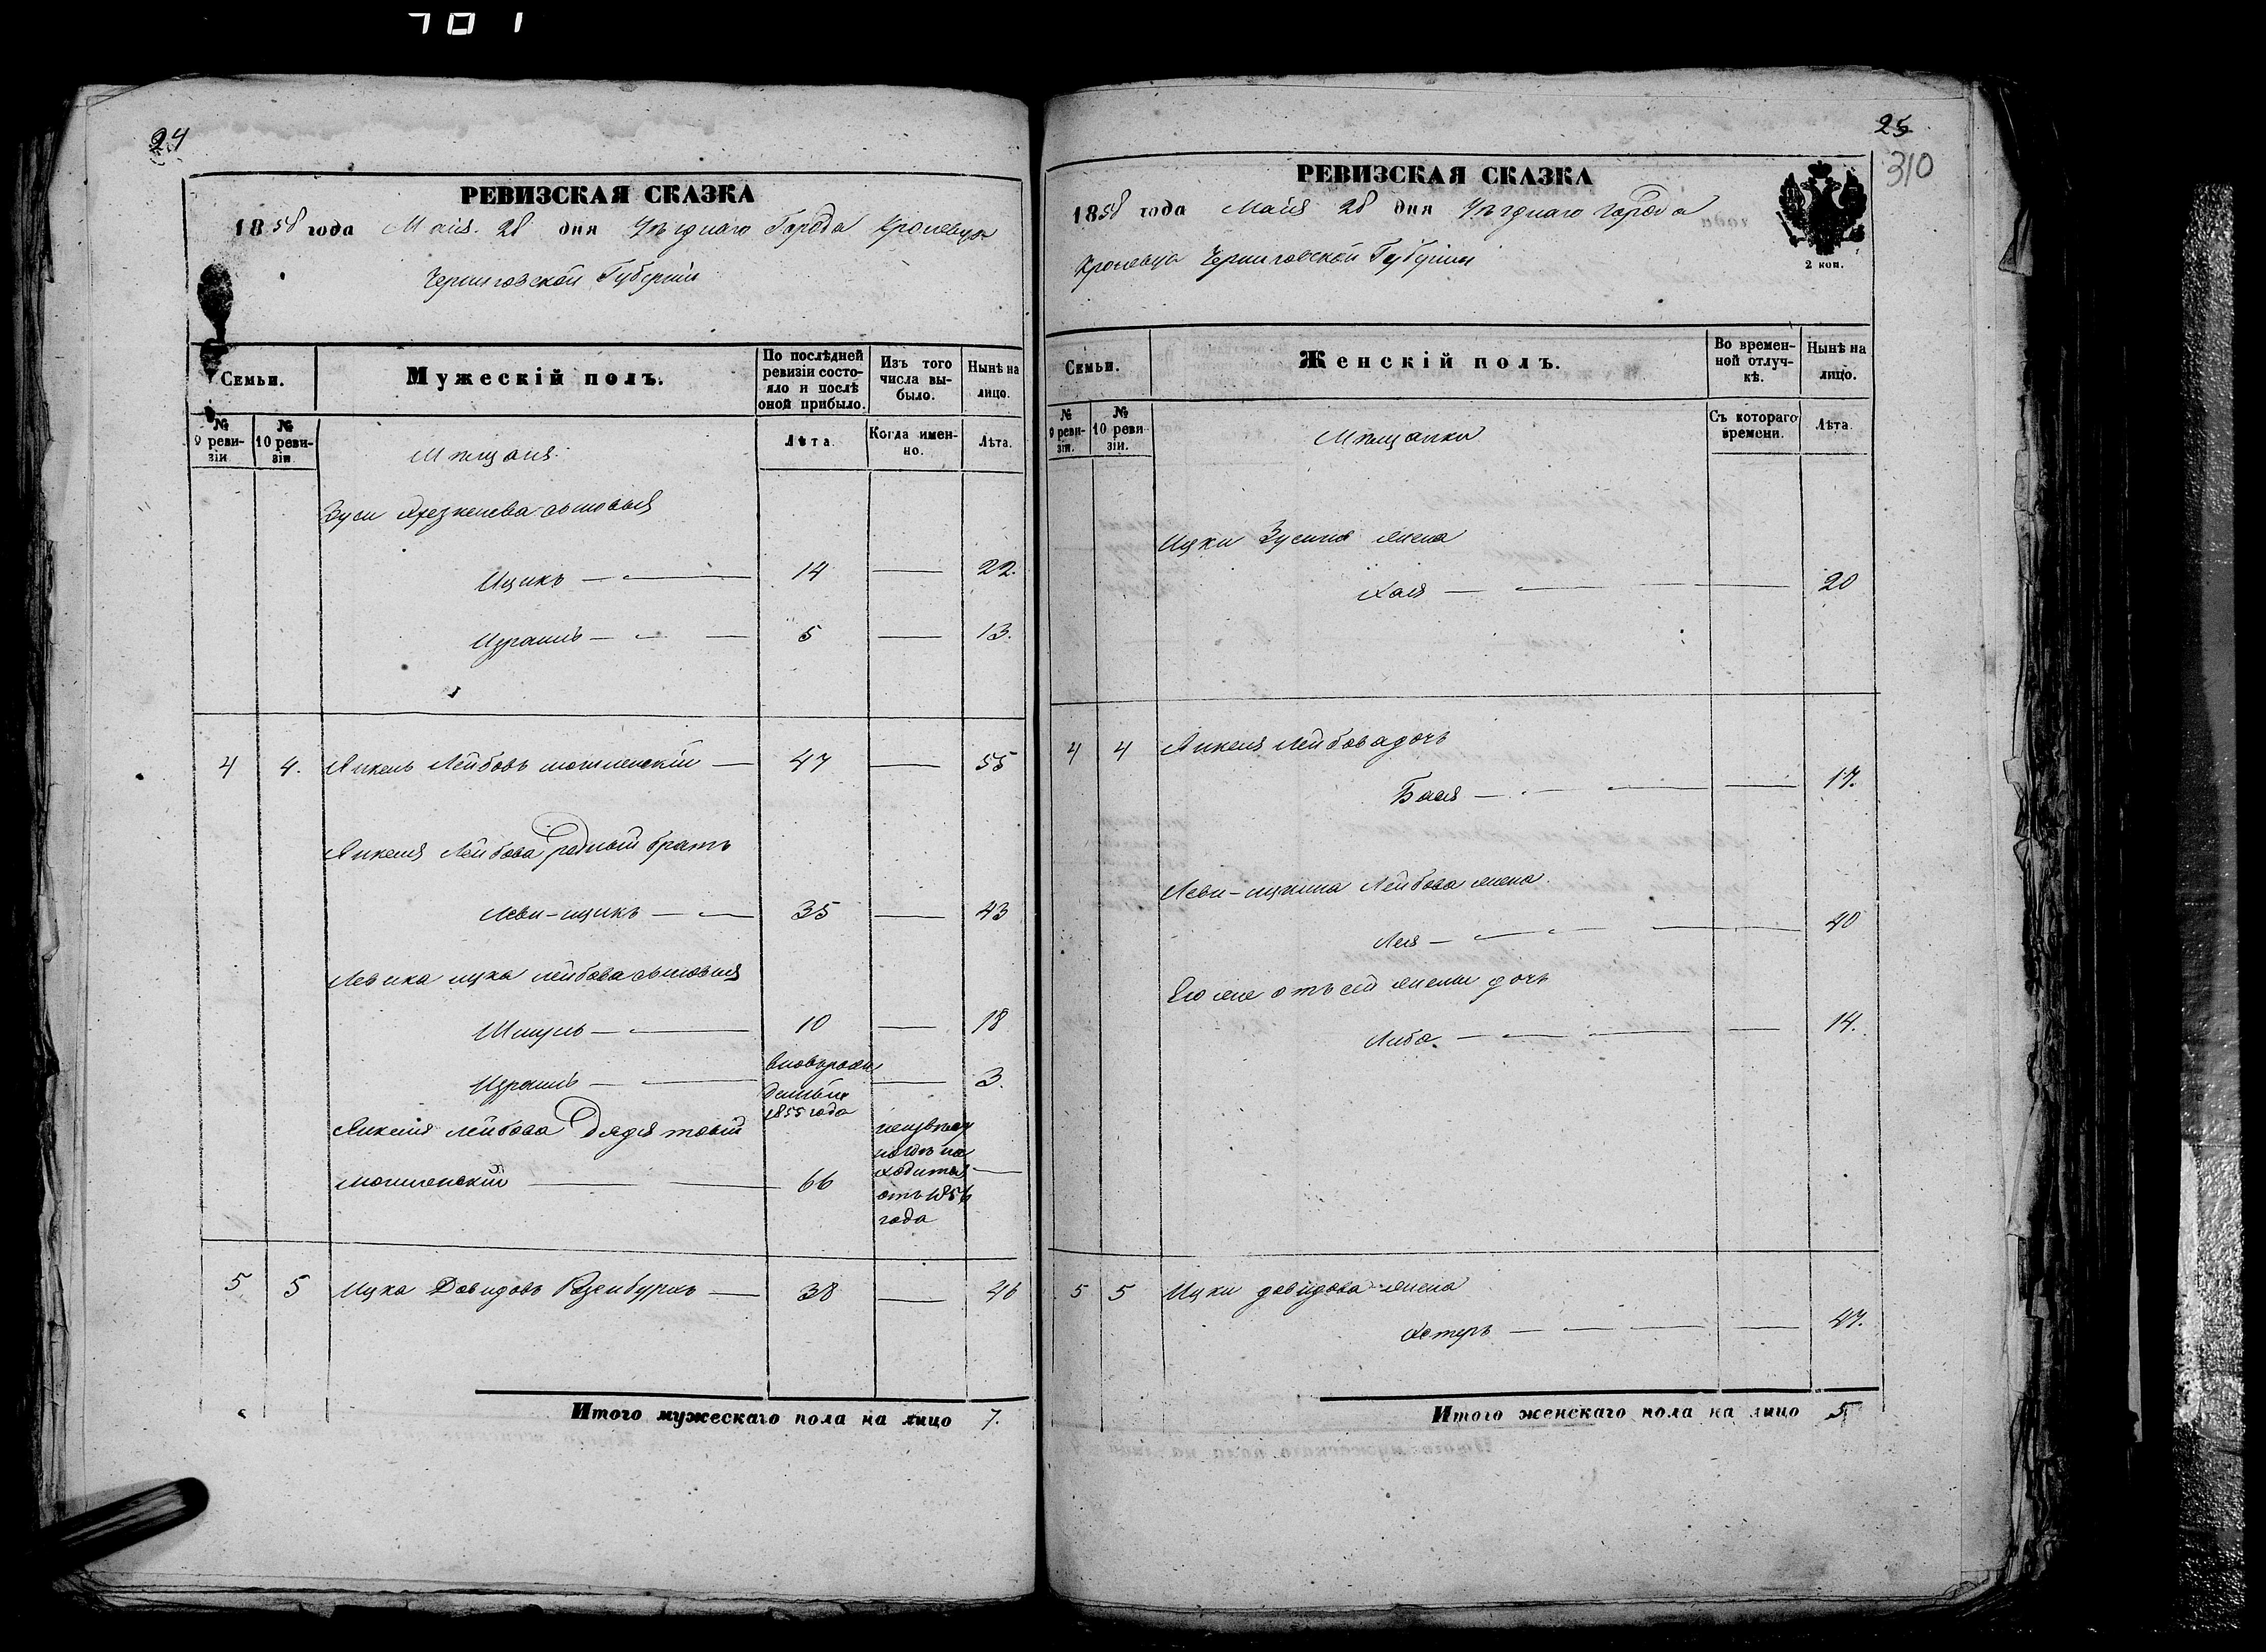 701
24
РЕВИЗСКАЯ СКАЗКА
1858 года Маія 28 дня Уѣзднаго Города Кролевца
Черниговской Губерніи
Семьи.
Мужескій полъ.
По послѣдней ревизіи состояло и послѣ оной прибыло.
Изъ того числа выбыло.
Нынѣ на лицо.
№ 9 ревизіи
№ 10 ревизіи.
Лѣта.
Когда именно.
Лѣта.
Мѣщане
Зуси сыновья
Ицикъ — 14 — 22.
Израиль — 5 — 13.
4 4. Янкель Лейбовъ Могилевскій — 47 — 55
Янкеля Лейбова родный братъ
Леви-ицикъ — 35 — 43
Левика ицка Лейбова сыновья
Шмуль — 10 — 18
Израиль — вновьрожденный 1855 года — 3.
Янкеля Лейбова Дядя
Могилевскій — 66 неизвѣстно гдѣ находится отъ 1856 года —
5 5 Ицка Давидовъ Розенбургъ — 38 — 46
Итого мужескаго пола на лицо 7.
25
310
РЕВИЗСКАЯ СКАЗКА
1858 года Маія 28 дня Уѣзднаго Города
Кролевца Черниговской Губерніи
2 коп.
Семьи.
Женскій полъ.
Во временной отлучкѣ.
Нынѣ на лицо.
№ 9 ревизіи.
№ 10 ревизіи.
Съ котораго времени.
Лѣта.
Мѣщанки
Ицки Зусина жена
Хая — 20
4 4 Янкеля Лейбова дочь
Бася — 17.
Леви-ицкина Лейбова жена
Лея — 40
Его же отъ сей жены дочь
Либа — 14.
5 5 Ицки Давидова жена
Естеръ — 47.
Итого женскаго пола на лицо 5